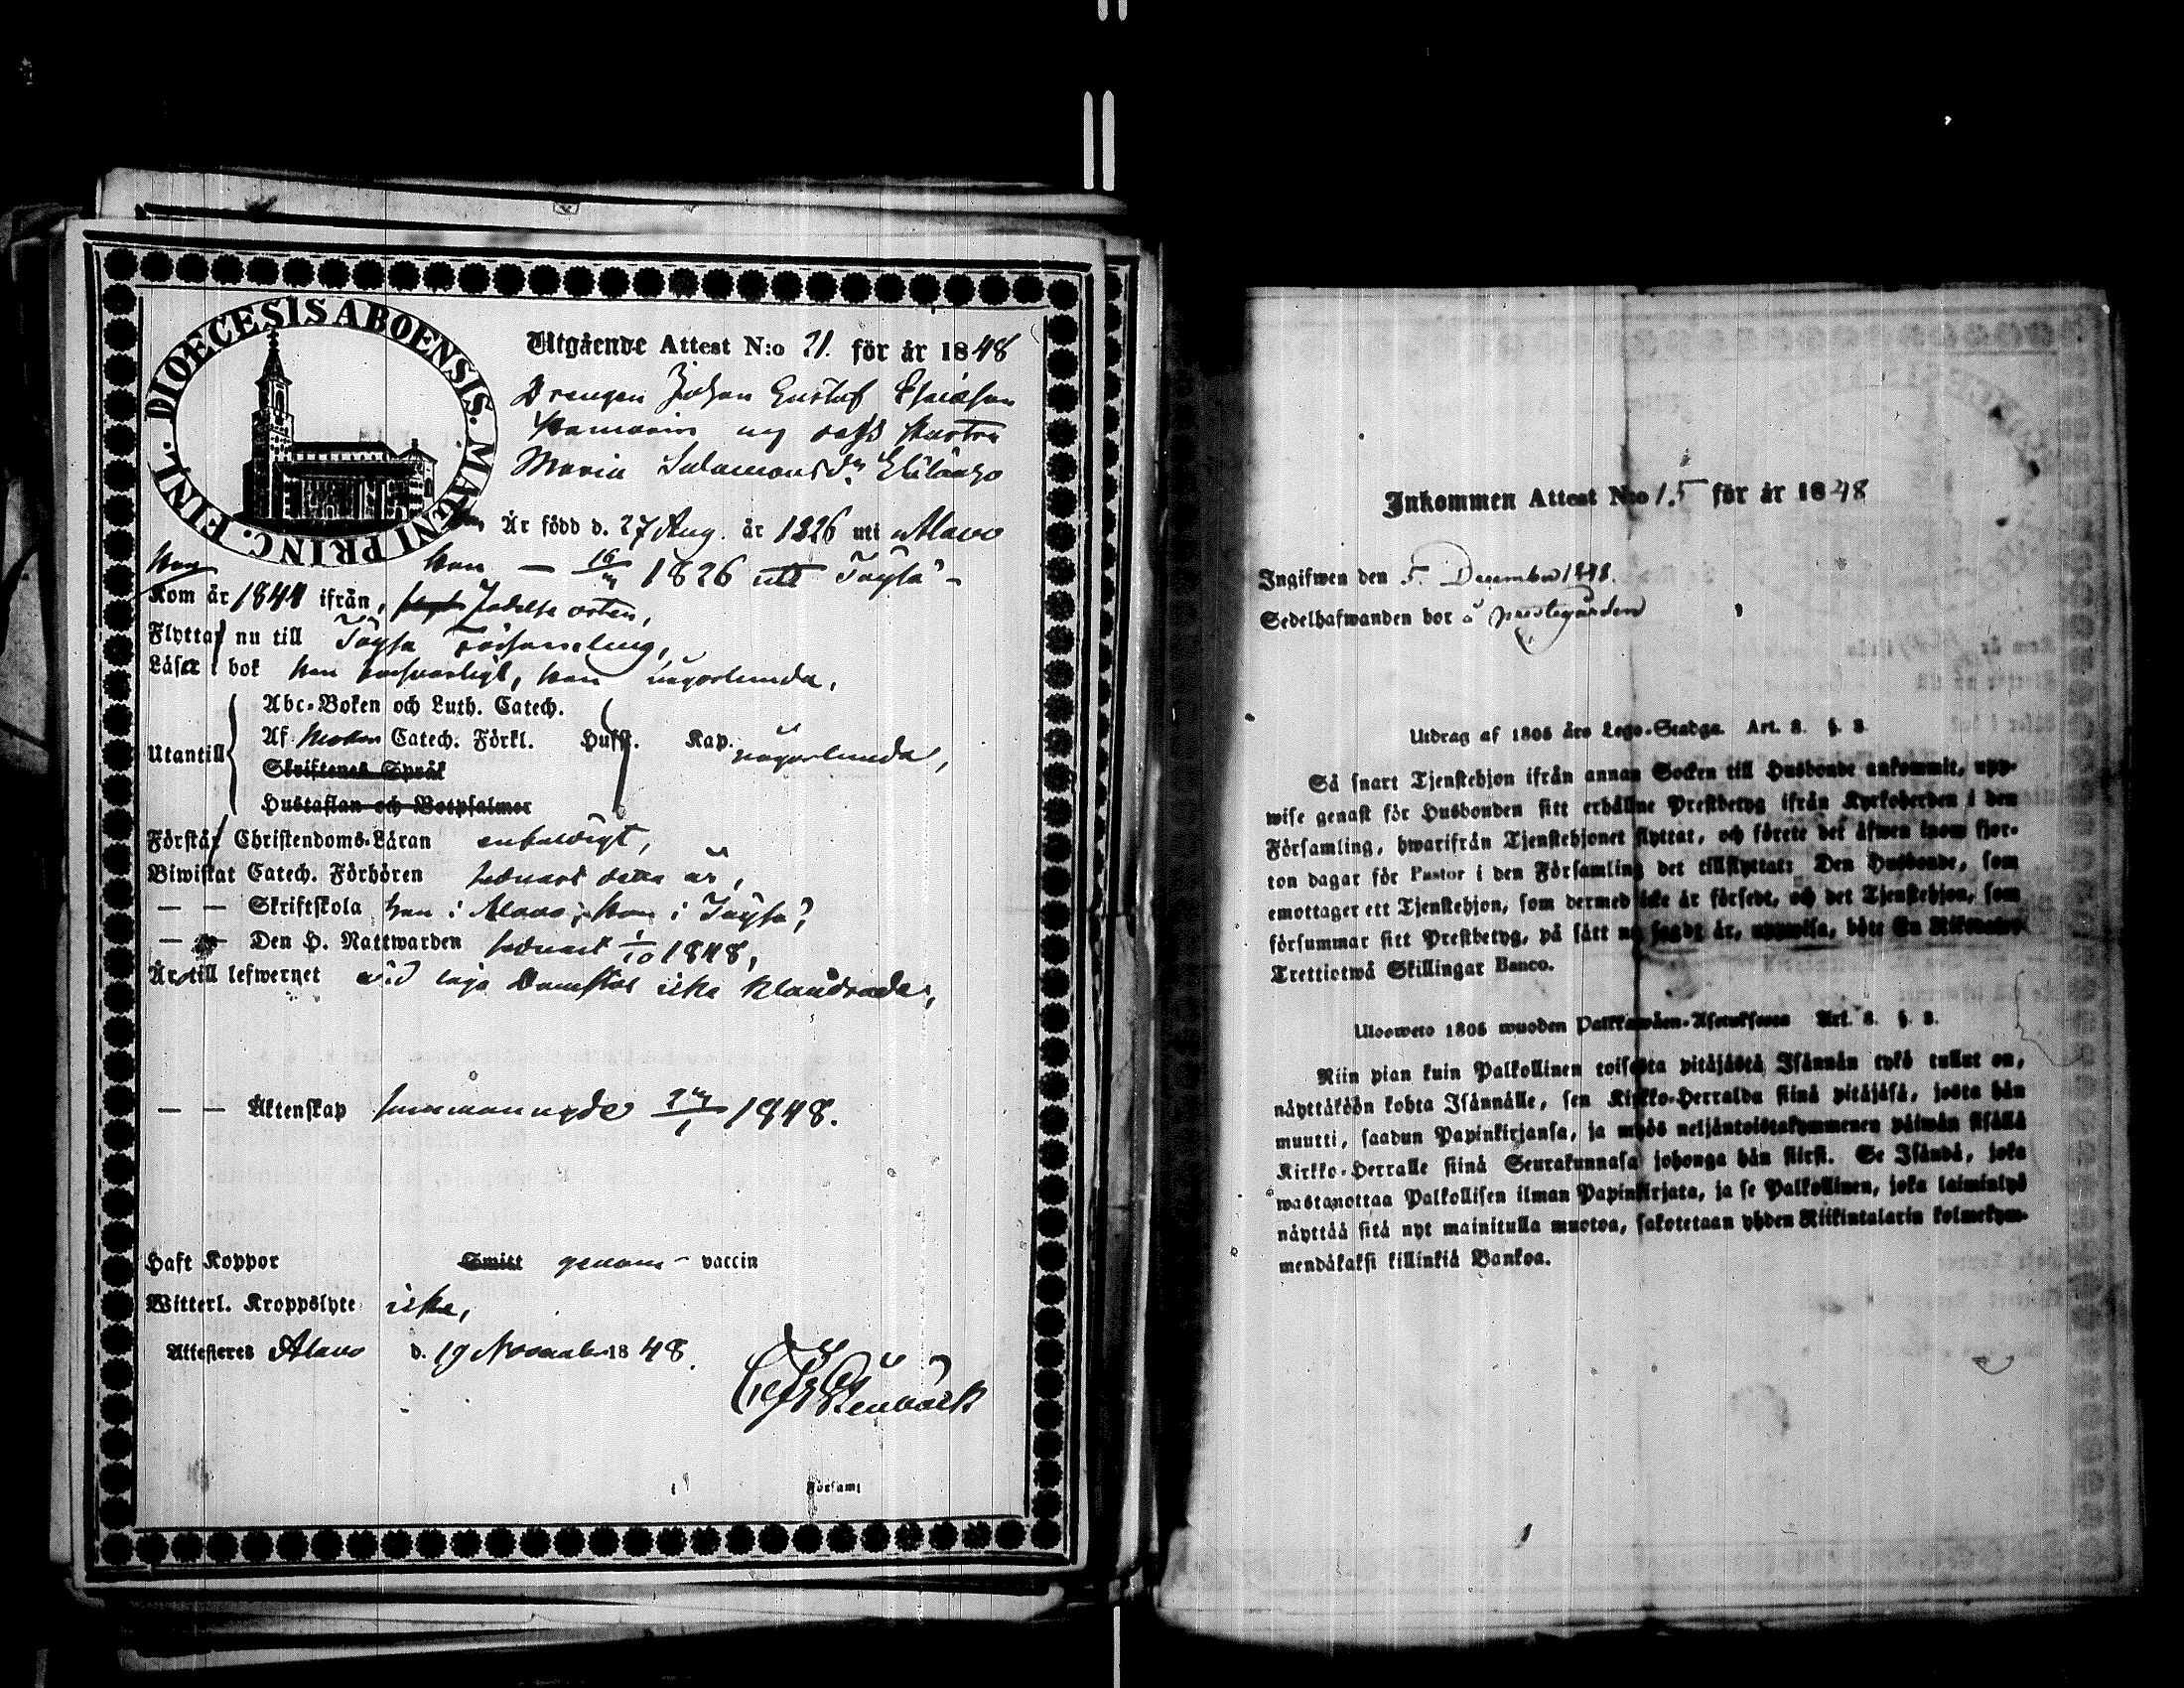 DIOECESIS ABOENSIS. MAGNI PRINC. FINL.
Utgående Attest N:o 21. för år 1848
Drengen Johan Gustaf
Hustru
Maria Salamonsdr
Är född d. 27 Aug. år 1826 uti Alavo
hon — 1826 uti Töysä
Kom år ifrån, födelse orten,
Flyttar nu till Töysä Församling,
Läsa i bok han försvarligt, hon någorlunda,
Utantill
Abc-Boken och Luth. Catech.
Af Catech. Förkl. Hufst. Kap. någorlunda,
Skriftenes Språk
Hustaflan och Botpsalmer
Förstår Christendoms-Läran enfaldigt,
Biwistat Catech. Förhören senast detta år,
— — Skriftskola han i Alavo, hon i Töysä,
— — Den H. Nattwarden senast 1/10 1848,
Är till lefwernet vid laga Domstol icke klandrade,
— — Äktenskap 1848.
Haft Koppor Smitt genom vaccin
Witterl. Kroppslyte icke,
Attesteras Alavo d. 19 November 1848.
Stenbäck
i Församl
Inkommen Attest N:o 15 för år 1848
Ingifwen den 5. December 1848.
Sedelhafwanden bor å prestegården
Utdrag af 1805 års Lego-Stadga. Art. 8. §. 3.
Så snart Tjenstehjon ifrån annan Socken till Husbonde ankommit, upp-
wise genast för Husbonden sitt erhållne Prestbetyg ifrån Kyrkoherden i den
Församling, hwarifrån Tjenstehjonet flyttat, och förete det äfwen inom fjor-
ton dagar för Pastor i den Församling det tillflyttat: Den Husbonde, som
emottager ett Tjenstehjon, som dermed icke är försedt, och det Tjenstehjon, som
försummar sitt Prestbetyg, på sätt nu sagdt är, uppwisa, böte En Riksdaler
Trettiotwå Skillingar Banco.
Ulosweto 1805 wuoden Palkkawäen-Asetuksesta Art. 8. §. 3.
Niin pian kuin Palkollinen toisesta pitäjästä Isännän tykö tullut on,
näyttäköön kohta Isännälle, sen Kirkko-Herralda siinä pitäjäsä, josta hän
muutti, saadun Papinkirjansa, ja myös neljäntoistakymmenen päiwän sisällä
Kirkko-Herralle siinä Seurakunnasa johonga hän siirsi. Se Isändä, joka
wastanottaa Palkollisen ilman Papinkirjata, ja se Palkollinen, joka laiminlyö
näyttää sitä nyt mainitulla muotoa, sakotetaan yhden Riikintalarin kolmekym-
mendäkaksi killinkiä Bankoa.